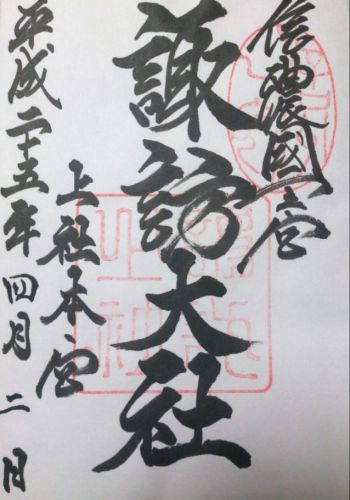 信濃國一宮
諏訪大社
上社本宮
平成二十五年四月二日